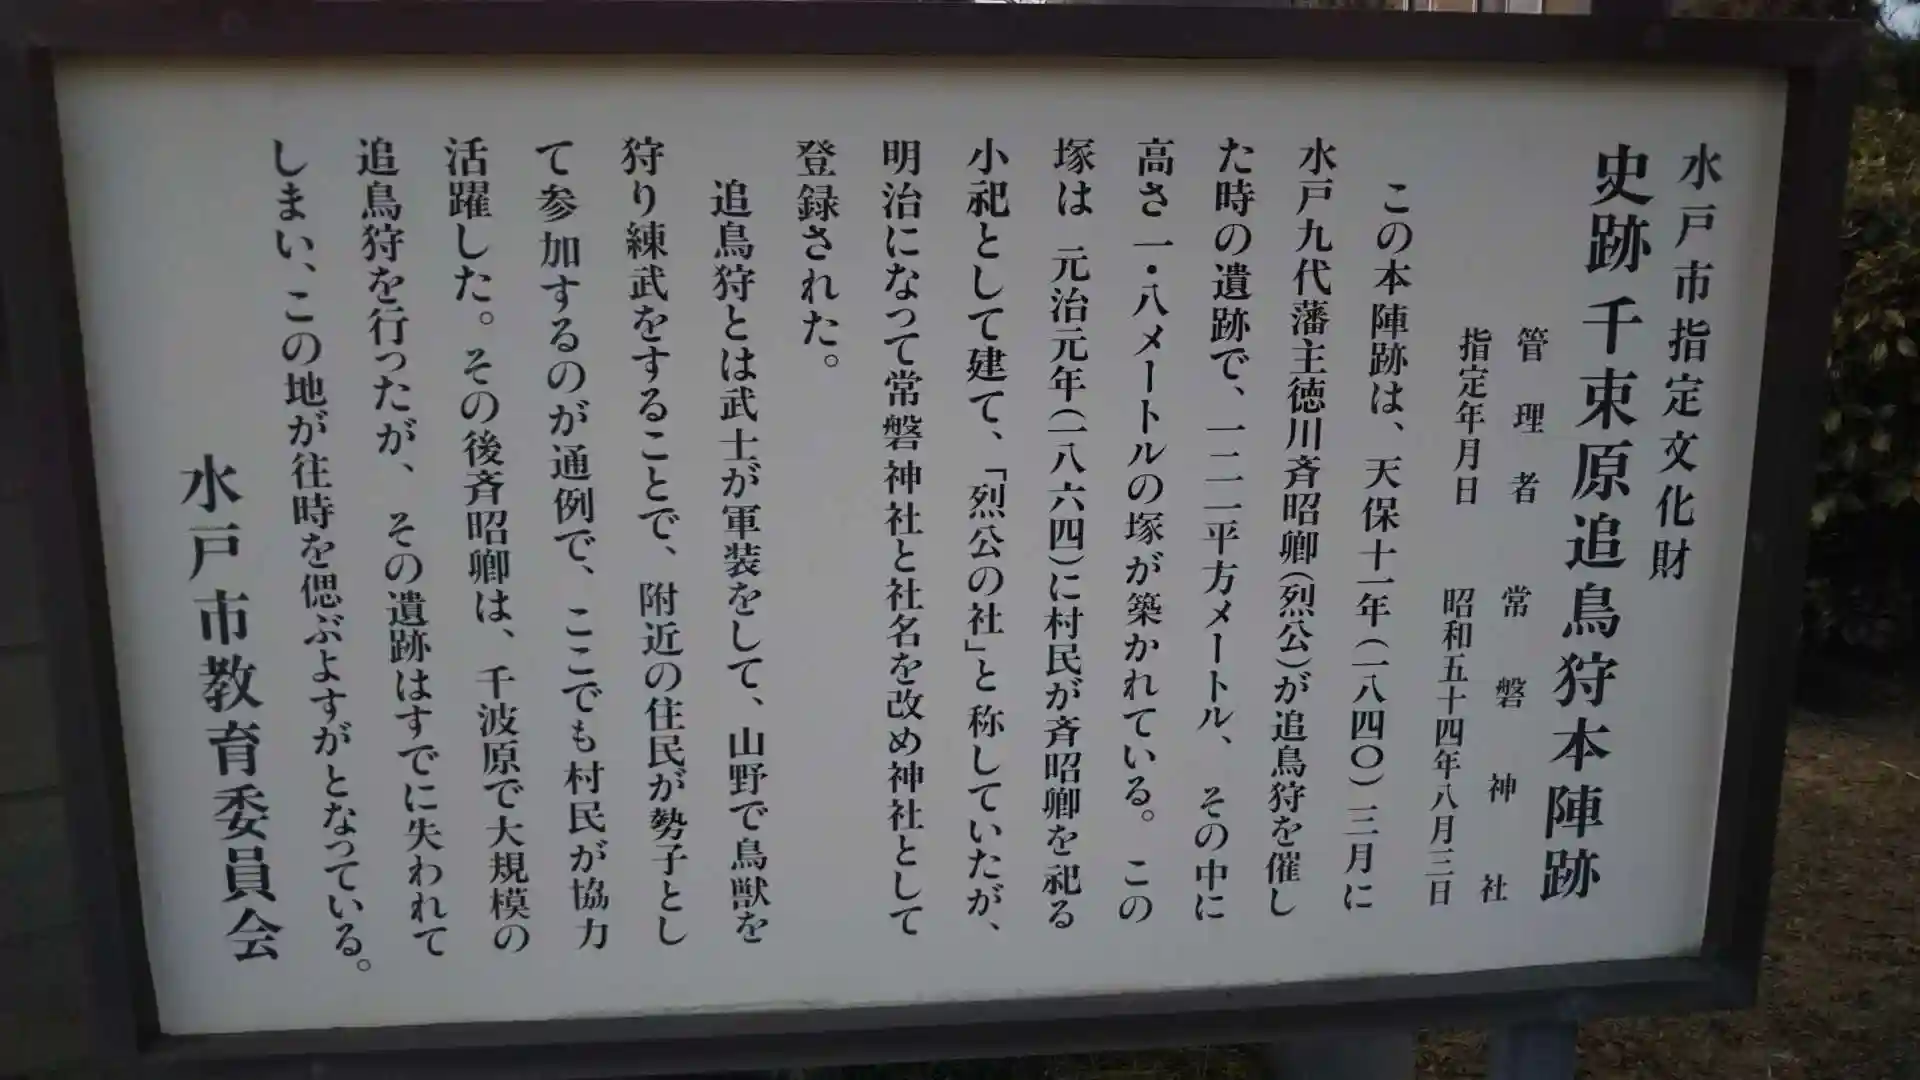 水戸市指定文化財
史跡 千束原追鳥狩本陣跡
管理者 常磐神社
指定年月日 昭和五十四年八月三日
この本陣跡は、天保十一年(一八四〇)三月に
水戸九代藩主徳川斉昭卿(烈公)が追鳥狩を催し
た時の遺跡で、一二一平方メートル、その中に
高さ一・八メートルの塚が築かれている。この
塚は 元治元年(一八六四)に村民が斉昭卿を祀る
小祀として建て、「烈公の社」と称していたが、
明治になって常磐神社と社名を改め神社として
登録された。
追鳥狩とは武士が軍装をして、山野で鳥獣を
狩り練武をすることで、附近の住民が勢子とし
て参加するのが通例で、ここでも村民が協力
活躍した。その後斉昭卿は、千波原で大規模の
追鳥狩を行ったが、その遺跡はすでに失われて
しまい、この地が往時を偲ぶよすがとなっている。
水戸市教育委員会